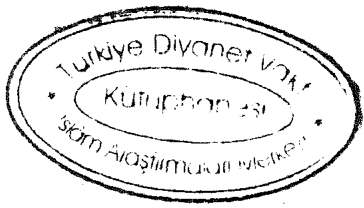 Türkiye Diyanet Vakfı
Kütüphanesi
İslâm Araştırmaları Merkezi